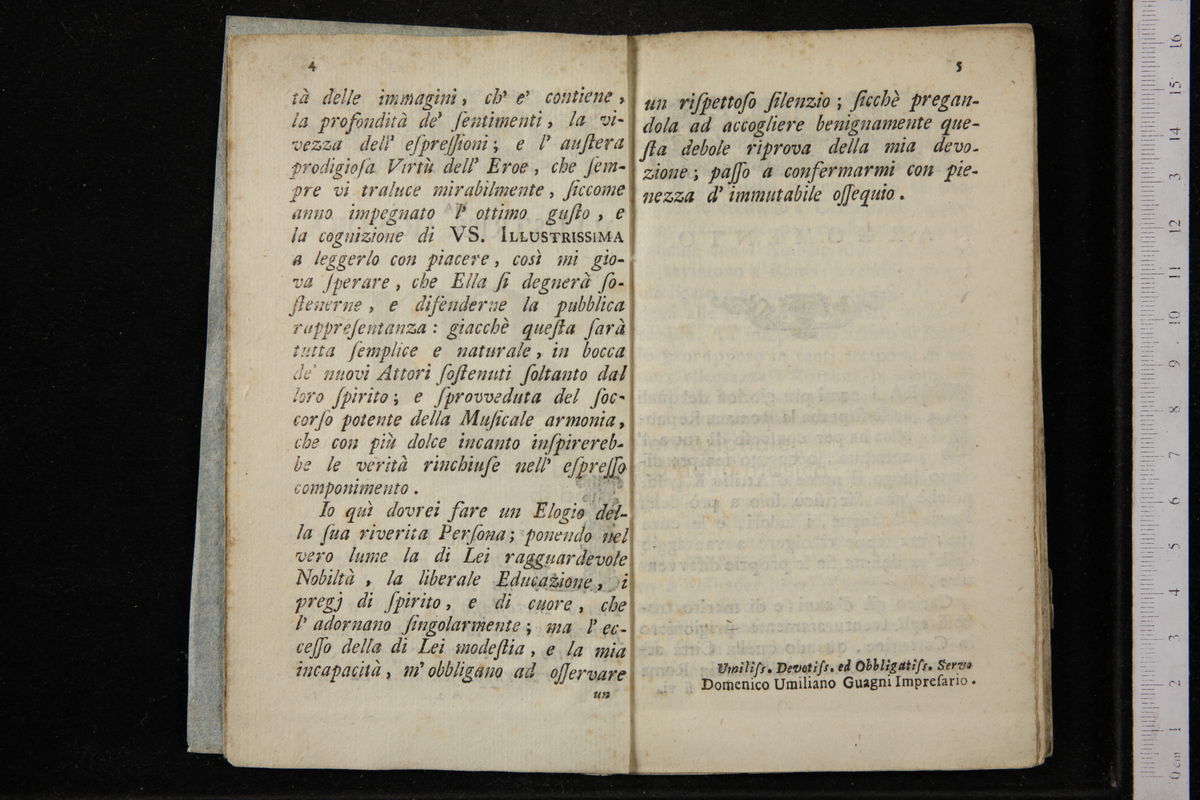 4
tà delle immagini, ch' e' contiene,
la profondità de' ſentimenti, la vi-
vezza dell' eſpreſſioni; e l' auſtera
prodigioſa Virtù dell' Eroe, che ſem-
pre vi traluce mirabilmente, ſiccome
anno impegnato l' ottimo guſto, e
la cognizione di VS. ILLUSTRISSIMA
a leggerlo con piacere, così mi gio-
va ſperare, che Ella ſi degnerà ſo-
ſtenerne, e difenderne la pubblica
rappreſentanza: giacchè queſta ſarà
tutta ſemplice e naturale, in bocca
de' nuovi Attori ſoſtenuti ſoltanto dal
loro ſpirito; e ſprovveduta del ſoc-
corſo potente della Muſicale armonia,
che con più dolce incanto inſpirereb-
be le verità rinchiuſe nell' eſpreſſo
componimento.
Io quì dovrei fare un Elogio del-
la ſua riverita Perſona; ponendo nel
vero lume la di Lei ragguardevole
Nobiltà, la liberale Educazione, i
pregj di ſpirito, e di cuore, che
l' adornano ſingolarmente; ma l' ec-
ceſſo della di Lei modeſtia, e la mia
incapacità, m' obbligano ad oſſervare
un
5
un riſpettoſo ſilenzio; ſicchè pregan-
dola ad accogliere benignamente que-
ſta debole riprova della mia devo-
zione; paſſo a confermarmi con pie-
nezza d' immutabile oſſequio.
Umiliſs. Devotiſs. ed Obbligatiſs. Servo
Domenico Umiliano Guagni Impreſario.
0 cm 1 2 3 4 5 6 7 8 9 10 11 12 13 14 15 16